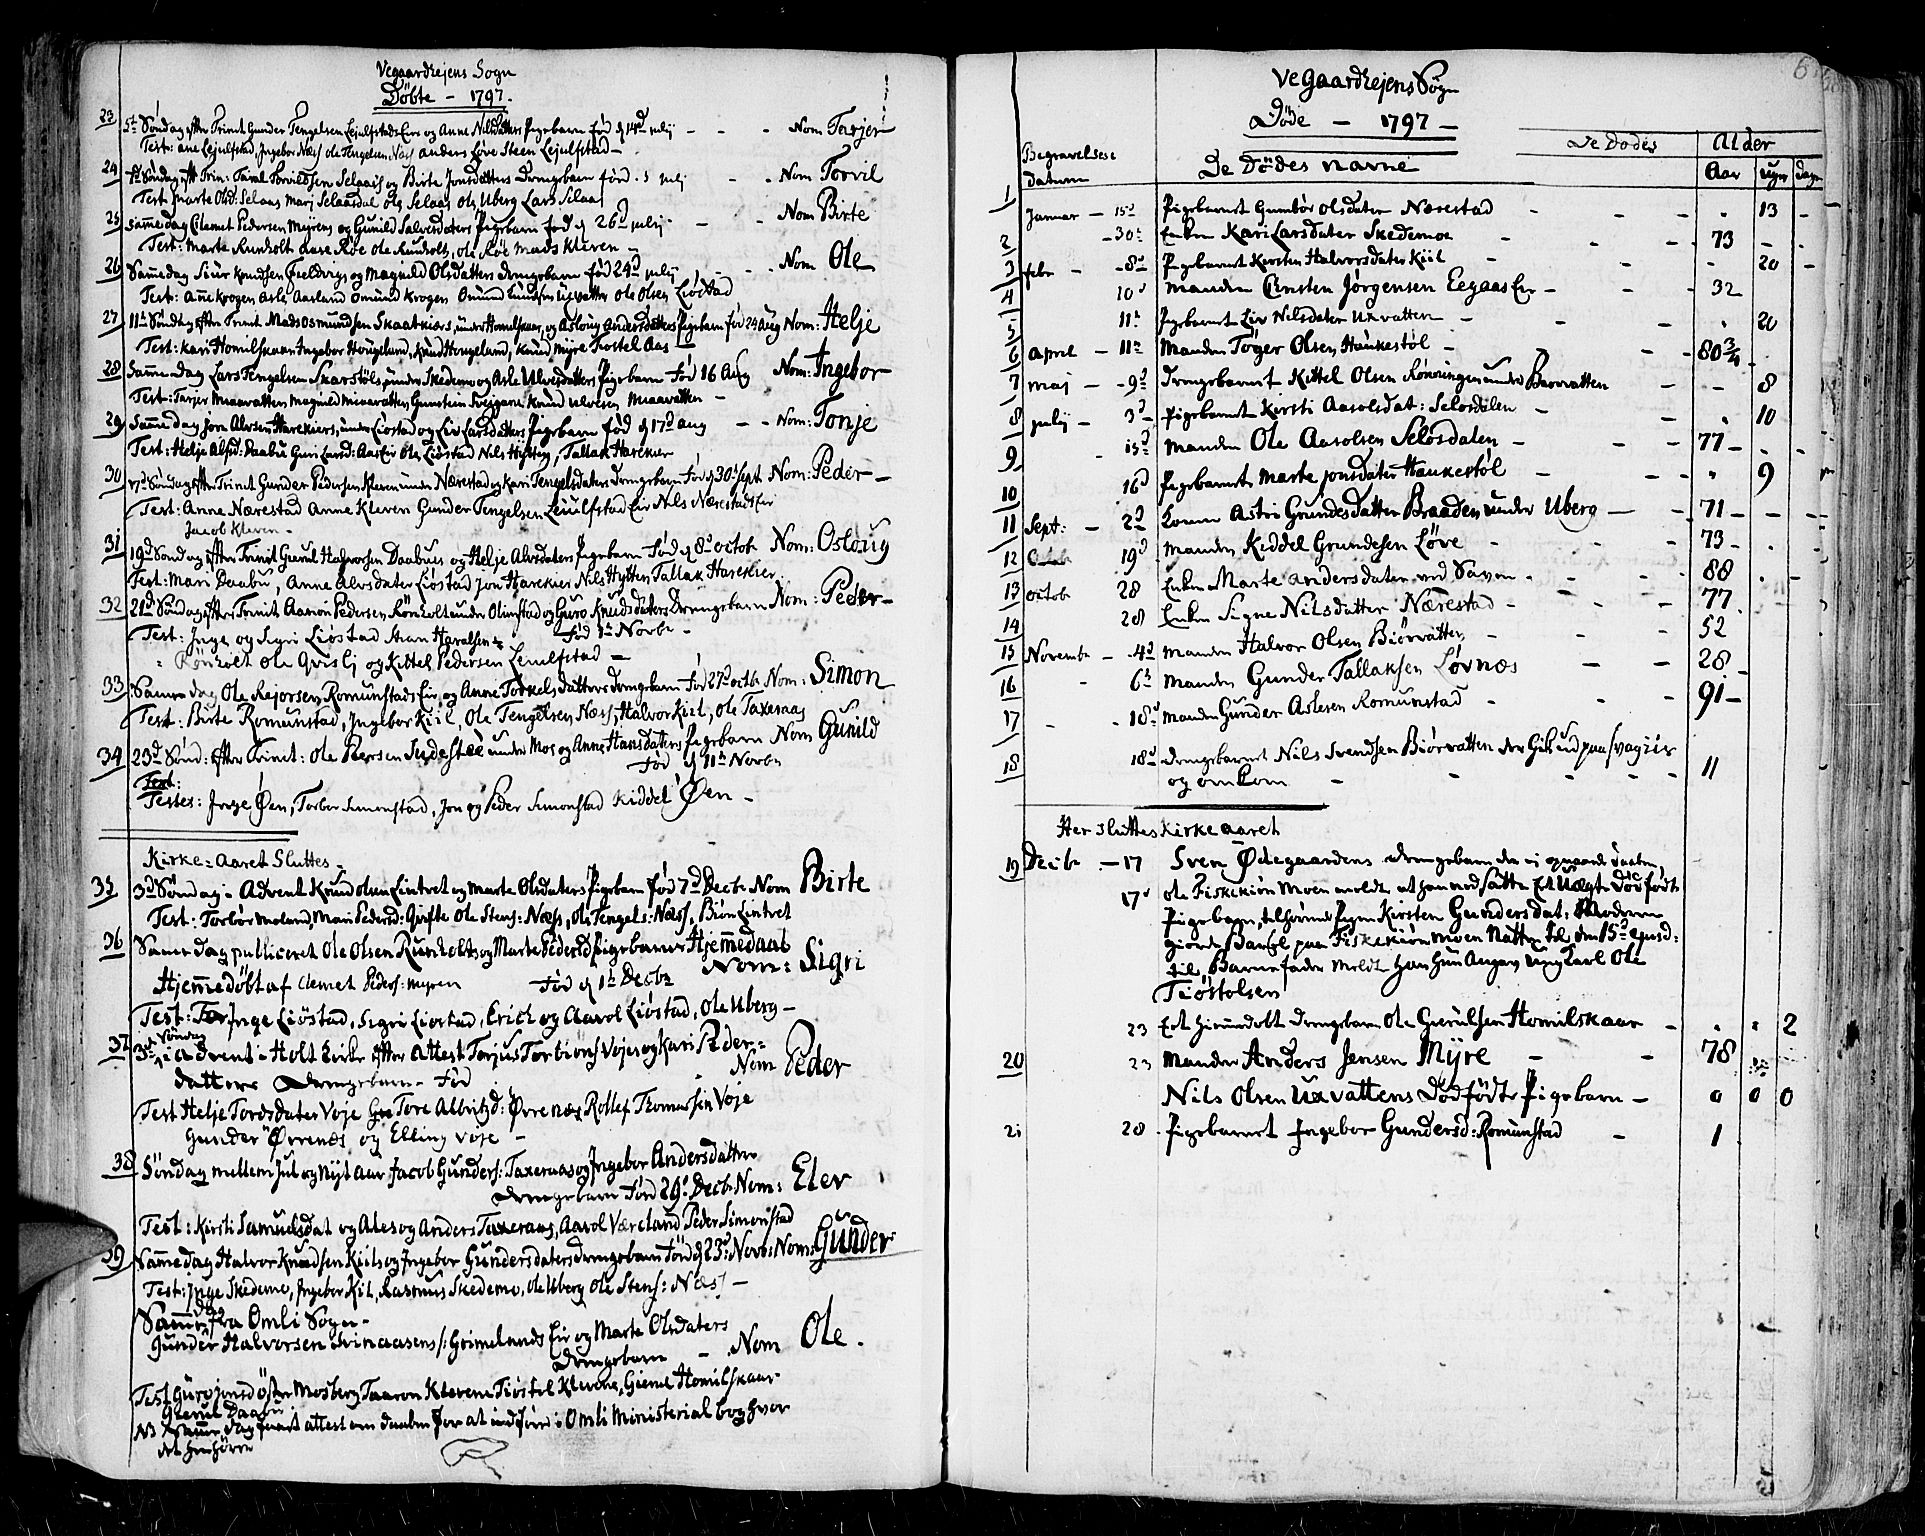 Vegaardhejens Sogn
Döbte - 1797.
23
5te Söndag efter Trinit Gunder Tengelsen Lejulfstads Eier og Anne Nilsdatters Pigebarn föd d 14d julij - - - Nom Tarjer
Test: ane Lejulfstad, Ingebor Næss ole Tengelsen Næss anders Löve Steen Lejulfstad -
24
Söndag eft Trin: Taral Torvildsen Selaas og Birte Jonsdatters Drengebarn föd julij - - Nom Torvil
Test Marte Olsd: Selaas Marj Selaasdal ole Selaas ole Uberg Lars Selaas
25
samme dag Clemet Pedersen Myrens og Gunild Salvesdaters Pigebarn föd d 26d julij - - Nom Birte
Test: Marte Runholt Aase Röe Ole Runholt, ole Röe Mads Kleven -
26
Samme dag Siur Knudsen Fieldvigs og Magnild Olsdatters drengebarn föd 24d julij - - Nom Ole
Test: Ane Krogen Asle Aasland Omund Krogen Omund Knudsen Uxvatten Ole Olsen Liöstad
27
11te Söndag efter Trinit Mads Osmundsen Skaatkiers, under Homilskaar, og Asloug Andersdatters Pigebarn föd 24 aug Nom: Helje
Test: Kari Homilskaar Ingebor Hougeland, Knud Hougeland, Knud Myre Tiostel Aas -
28
Samme dag Lars Tengelsen Skarstöls, under Skedemo og Asle Ulvesdatters Pigebarn föd 16 Aug Nom: Ingebor
Test: Tarjer Miaavatten Magnild Miaavatten, Gunstein Knud ulvesen Miaavatten -
29
Samme dag Jon Alvsen Harekiers, under Liöstad og Liv Larsdatters Pigebarn föd d 17d aug - - Nom: Tonje
Test: Helje Alfsd: Daabu Guri Larsd: Aas Ole Liöstad Nils Hytten, Tallak Harekier
30
17d Söndag efter Trinit Gunder Pedersen Kleven under Nærestad og Kari Tengelsdaters Drengebarn föd d 30t sept Nom: Peder -
Test: Anne Nærestad Anne Kleven Gunder Tengelsen Lejulfstad Eier Nils Nærestads Eier
Jacob Kleven -
31
19d Söndag efter Trinit Gierul Halvorsen Daabues og Helje Alvsdaters Pigebarn föd d 8d octob Nom: Osloug
Test: Mari Daabu, Anne Alvsdater Liöstad Jon Harekier Nils Hytten Tallak Harekier
32
21d Söndag efter Trinit Aanon Pedersen Rönholt under Olimstad og Guro Knudsdaters Drengebarn Nom: Peder -
Test: Inge og Sigri Liöstad Aven Haraldsen = föd 1te Novbr -
= Rönholt ole Qvislj og Kittel Pedersen Lejulfstad -
33
Samme dag Ole Rejorsen Romunstads Eier og Anne Torkelsdatters drengebarn föd 27d octb Nom: Simon
Test: Birte Romunstad, Ingebor Kiil, Ole Tengelsen Næss, Halvor Kiil, Ole Taxeraas
34
23d Sönd: efter Trinit: Ole Peersen under Moe og Anne Hansdaters Pigebarn Nom Gunild
föd d 11te Novbr
Test:
Testes: Inge Öen, Torbor Simonstad, Jon og Peder Simonstad Kiddel Öen -
Kirke = Aaret Sluttes -
35
3d Söndag - Advent Knud Olsen Lintvet og Marte Olsdaters Pigebarn föd 7d Decb Nom Birte
Test: Torbor Moland, Mari Pedersd: Gifte Ole Stens: Næss, Ole Tengels: Næss, Biörn Lintvet
36
Samme dag publiceret Ole Olsen Runholts og Marte Pedersd Pigebarns Hjemmedaab
Nom: Sigri
Hjemmedöbt af Clemet Peders: Myren föd d 1te Decbr
Test: Inge Liöstad, Sigri Liöstad, Erich og Aavol Liöstad, Ole Uberg -
37
3de Söndag i advent i Holt Kirke efter Attest Torjus Torbiörns Vojes og Kari Peder =
datters Drengebarn - föd Nom Peder
Test Helje Tordsdater Voje Tore Albritzd: Örrenæs Rollef Thomassen Voje
Gunder Örrenes og Elling Voje -
38
Söndag mellem Jul og Nyt aar Jacob Gunders: Taxeraas og Ingebor Andersdatters
drengebarn föd 29d Decb Nom: Eler
Test: Kirsti Samuelsdat og Ales og Anders Taxeraas, Aavol Væreland Peder Simonstad
39
Samme dag Halvor Knudsen Kiils og Ingebor Gundersdaters drengebarn föd d 23d Novb: Nom: Gunder
Test: Inge Skedemo, Ingebor Kiil, Rasmus Skedemo, Ole Uberg Ole Stens: Næss -
Samme dag fra Omli Sogn -
Gunder Halvorsen Trinaasens /: Grimelands Eier og Marte Olsdaters
Drengebarn - Nom Ole.
Test Guro Jonsd öster Mosberg Taaron Klevene Tiöstel Klevene, Gierul Homilskaar
Gierul Daabu
NB Samme dag givet attest om daaben for at indföres i Omli Ministerial bog hvor
det henhörer
Vegaardhejens Sogn
Döde - 1797 -
Begravelses datum
De Dödes navne
De Dödes Alder
Aar uger dage
1 Januar - 15d Pigebarnet Gunbör Olsdater Nærestad - - - 13 -
2 - 30te Enken Kari Larsdater Skedemoe - - - 73 - -
3 febr - - 8d Pigebarnet Kirsten Halvorsdater Kiil - - - 20 -
4 10d Manden Christen Jörgensen Eegaas Eier - - - 32
5 11te Pigebarnet Liv Nilsdater Uxvatten - - - 20
6 April - 11te Manden Töger Olsen Haukestöl - - - 80 3/4
7 Maj - - 9d Drengebarnet Kittel Olsen Rönningen under Biorvatten - - - 8
8 Julij - 3d Pigebarnet Kirsti Aavolsdat: Selösdalen - - 10
9 15de Manden Ole Aavolsen Selösdalen - - - 77 - - -
10 16d Pigebarnet Marte Jonsdater Haukestöl - - - " 9
11 Sept: - 2d Konen Astri Grundesdatter Braaden under Uberg - - - 71 - - -
12 19d Manden Kiddel Grundesen Löve - - - 73 -
13 octob 28 Enken Marte Andersdater ved Saven - - - 88
14 28 Enken Signe Nilsdatter Nærestad - - - 77
15 Novembr - 4d Manden Halvor Olsen Biörvatten - - - 52
16 6te Manden Gunder Tallaksen Lövnæs - - 28 -
17 18d Manden Gunder Aslesen Romunstad - - - 91 -
18 18d Drengebarnet Nils Svendsen Biörvatten der Gik ud paa svag iis
og omkom - - - - 11
Her Sluttes Kirke aaret
19 Decbr - 17 Sven Ödegaardens drengebarn der ei opnaaede daaben,
17d Ole Fiskekiön Moen meldt at han nedsatte Et uægte Död födt
Pigebarn, tilhörende Pigen Kirsten Gundersdat: Moderen
giorde Barsel paa Fiskekiön Moen Natten til den 15de ejusd:
til Barnefader meldt har hun Angivet ung Karl Ole
Tiöstolsen
23 Et hiemmedöbt drengebarn Ole Gierulsen Homilskaar - - - 2
20 23 Manden Anders Jensen Myre - - 78
Nils Olsen Uxvattens Dödfödte Pigebarn - 0 0 0
21 28 Pigebarnet Ingebor Gundersd: Romunstad - 1